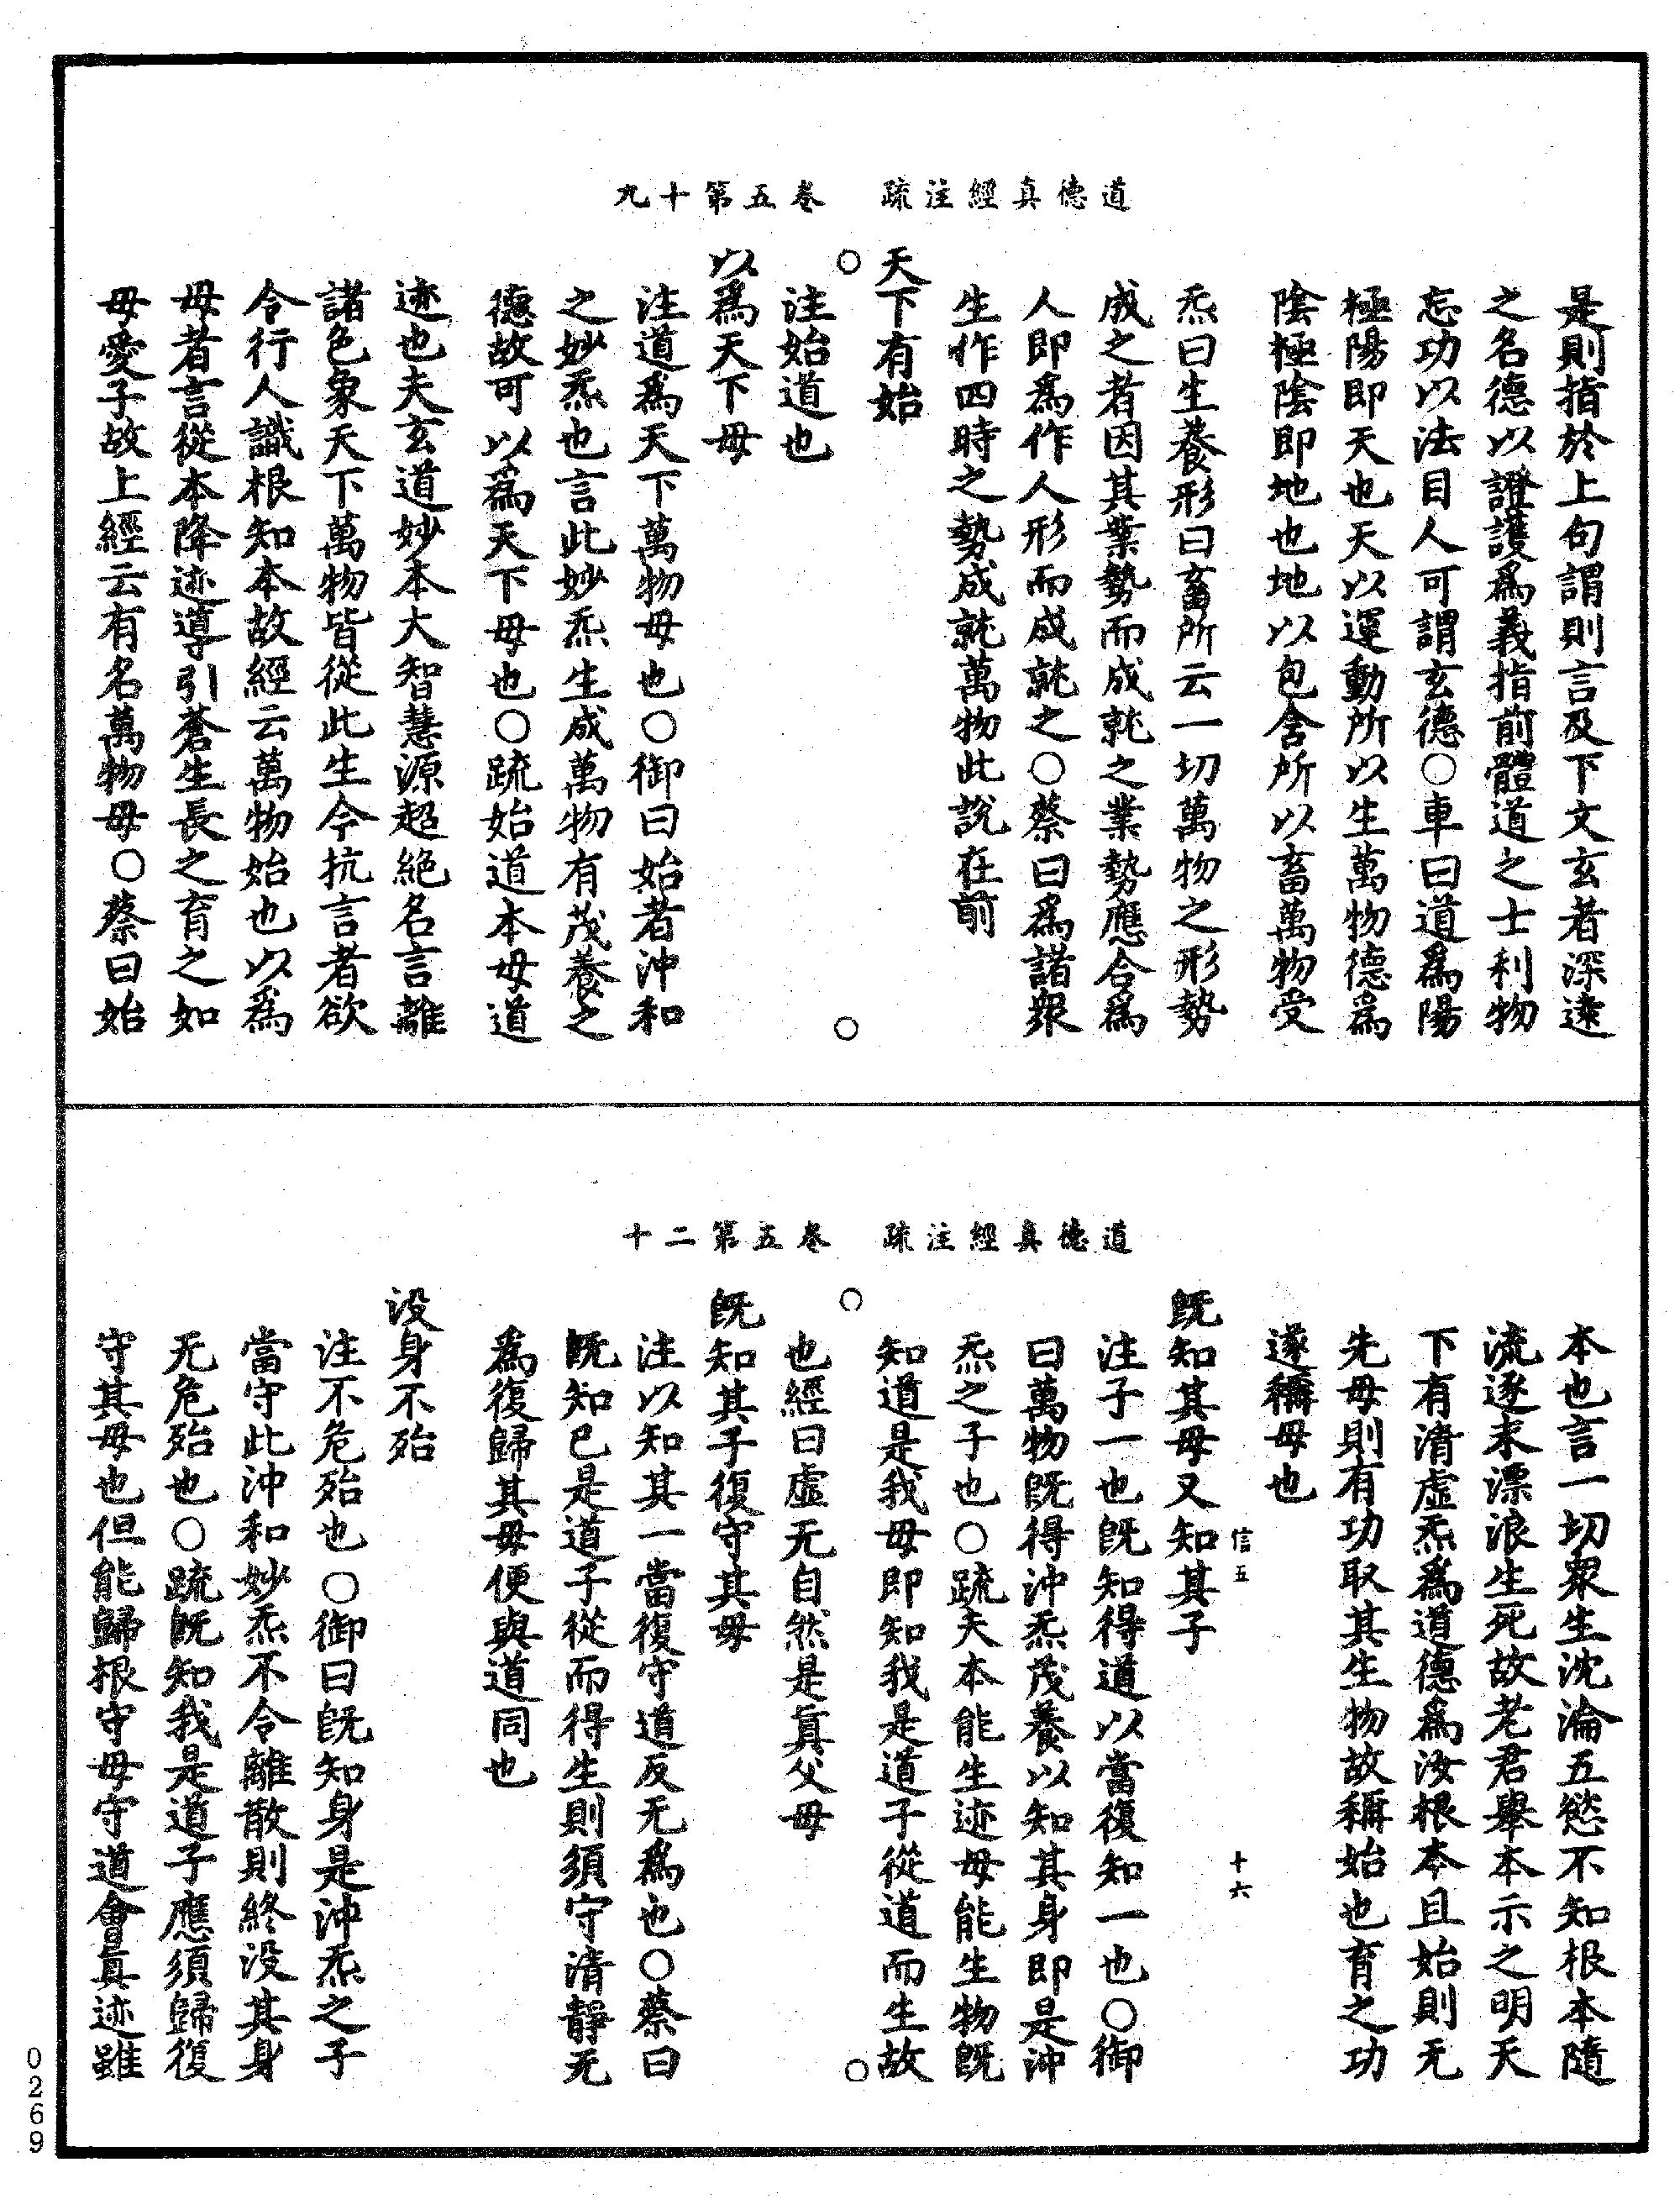 道德真經注疏　卷五第十九
是則指於上句謂則言及下文玄者深遠
之名德以證護爲義指前體道之士利物
忘功以法目人可謂玄德○車曰道爲陽
極陽即天也天以運動所以生萬物德爲
陰極陰即地也地以包含所以畜萬物受
炁曰生養形曰畜所云一切萬物之形勢
成之者因其業勢而成就之業勢應合爲
人即爲作人形而成就之○蔡曰爲諸衆
生作四時之勢成就萬物此說在前
天下有始
○　○
注始道也
以爲天下母
注道爲天下萬物母也○御曰始者沖和
之妙炁也言此妙炁生成萬物有茂養之
德故可以爲天下母也○疏始道本母道
迹也夫玄道妙本大智慧源超絶名言離
諸色象天下萬物皆從此生今抗言者欲
令行人識根知本故經云萬物始也以爲
母者言從本降迹導引蒼生長之育之如
母愛子故上經云有名萬物母○蔡曰始
道德真經注疏　卷五第二十
本也言一切衆生沈淪五慾不知根本隨
流逐末漂浪生死故老君舉本示之明天
下有清虛炁爲道德爲汝根本且始則无
先母則有功取其生物故稱始也育之功
遂稱母也
信五　十六
旣知其母又知其子
注子一也旣知得道以當復知一也○御
曰萬物旣得沖炁茂養以知其身即是沖
炁之子也○疏夫本能生迹母能生物旣
知道是我母即知我是道子從道而生故
○　○
也經曰虛无自然是眞父母
旣知其子復守其母
注以知其一當復守道反无爲也○蔡曰
旣知已是道子從而得生則須守清靜无
爲復歸其母便與道同也
没身不殆
注不危殆也○御曰旣知身是沖炁之子
當守此沖和妙炁不令離散則終没其身
无危殆也○疏旣知我是道子應須歸復
守其母也但能歸根守母守道會眞迹雖
0269